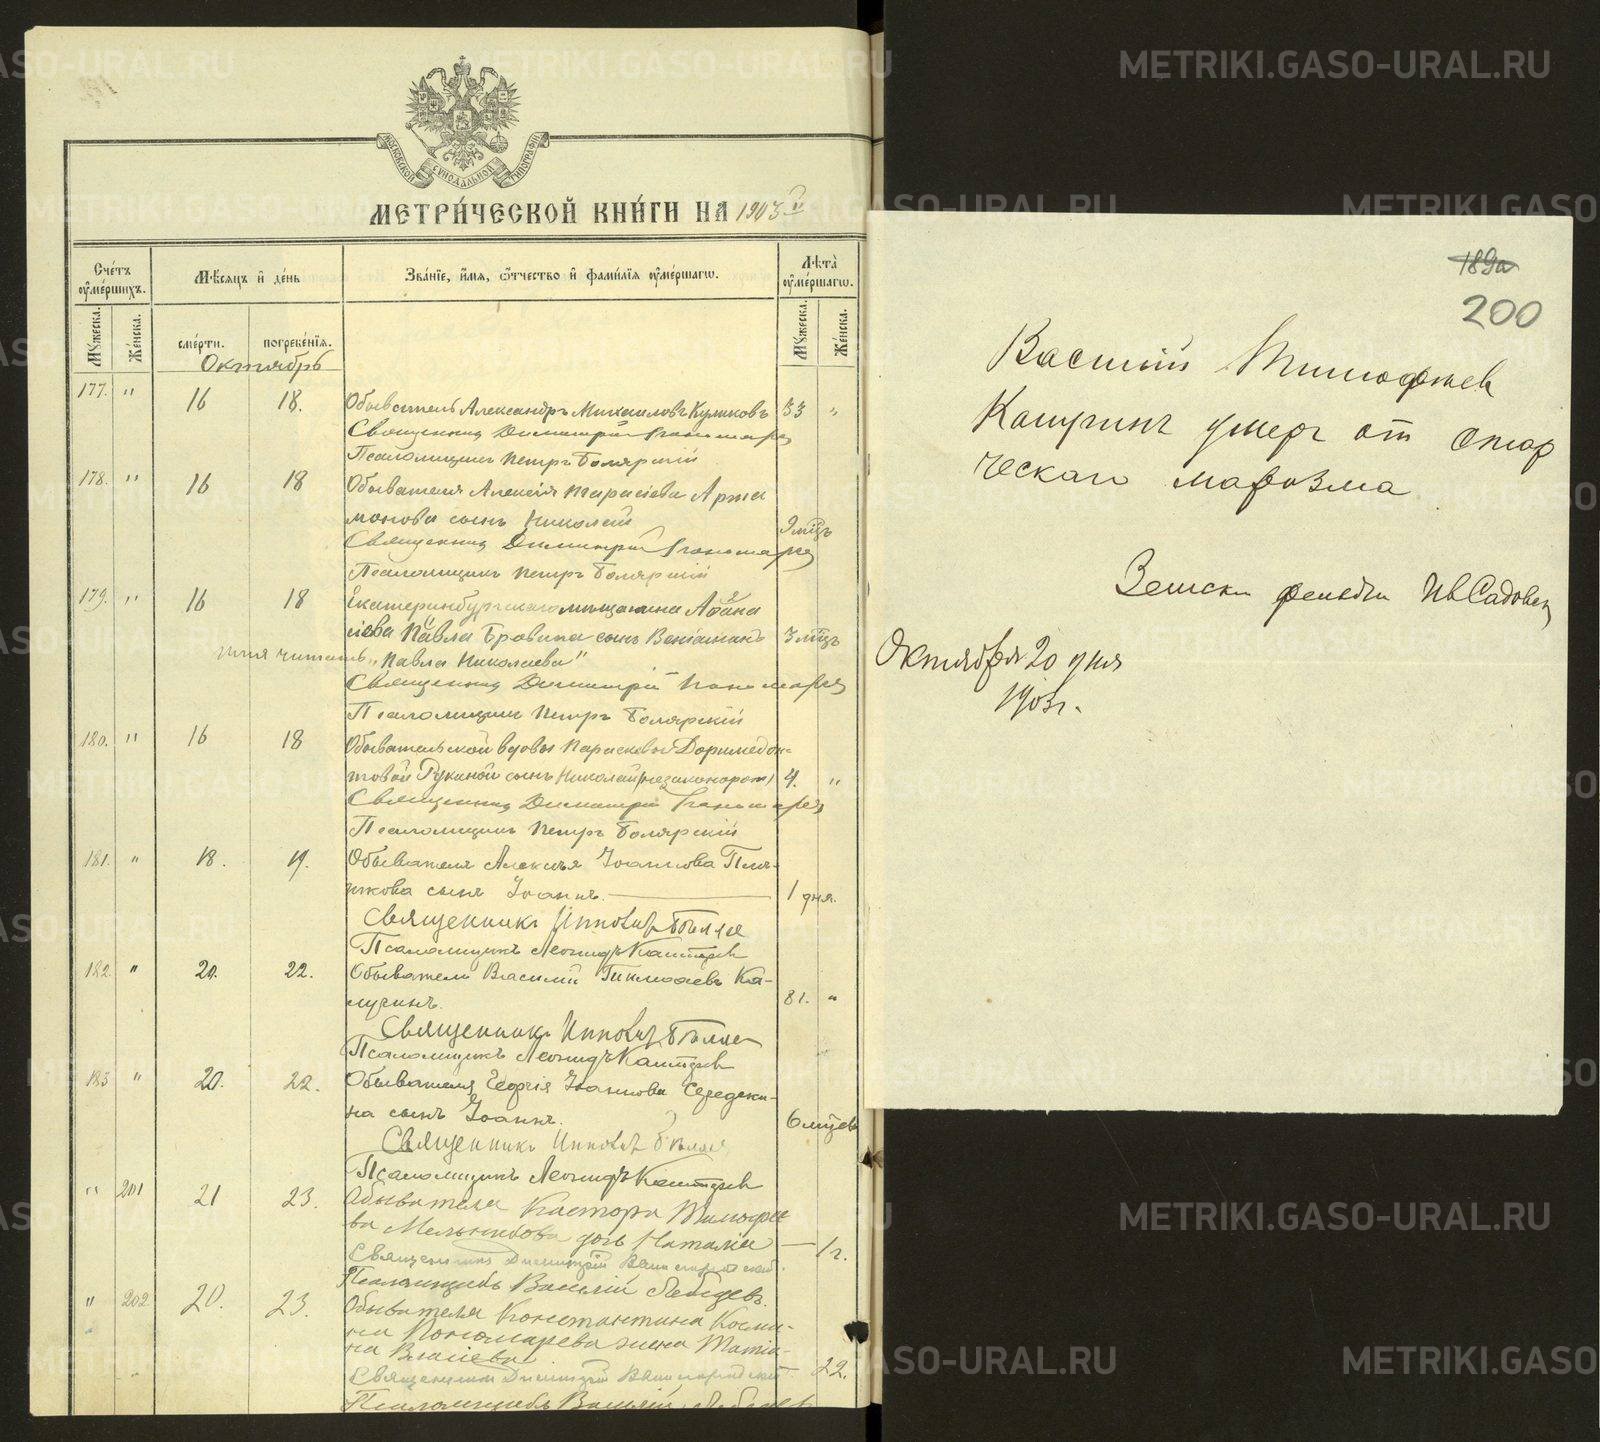 METRIKI.GASO-URAL.RU
МОСКОВСКОЙ СУНОДАЛЬНОЙ ТИПОГРАФІИ
МЕТРИ́ЧЕСКОЙ КНИ́ГИ НА 1903 г.
Сче́тъ ᲂу҆ме́ршихъ.
Мѣ́сѧцъ и҆ де́нь
Зва́нїе, и҆́мѧ, ѻ҆́тчество и҆ фами́лїѧ ᲂу҆ме́ршагѡ.
Лѣ́та ᲂу҆ме́ршагѡ.
Му́жеска.
Же́нска.
сме́рти.
погребе́нїѧ.
Му́жеска.
Же́нска.
Октябрь
177. " 16 18. Обыватель Александръ Михаиловъ Куликовъ 33 "
Священникъ Димитрій Пономаревъ
Псаломщикъ Петръ Боярскій
178. " 16 18 Обывателя Алексія Тарасіева Арта
монова сынъ Николай 9 мцъ
Священникъ Димитрій Пономаревъ
Псаломщикъ Петръ Боярскій
179. " 16 18 Екатеринбургскаго мѣщанина Афана
сіева Павла Бровина сынъ Веніаминъ 3 мцъ
читать "Павла Николаева"
Священникъ Димитрій Пономаревъ
Псаломщикъ Петръ Боярскій
180. " 16 18 Обывательской вдовы Параскевы Доримедон-
товой сынъ Николай (незаконорож) 4. "
Священникъ Димитрій Пономаревъ
Псаломщикъ Петръ Боярскій
181. " 18. 19. Обывателя Алексѣя Іоаннова
сынъ Іоаннъ. 1 дня.
Священникъ Ипполитъ Бѣляе
Псаломщикъ Леонидъ
182. " 20. 22. Обыватель Василій Тимоѳеевъ Ка-
лугинъ. 81. "
Священникъ Ипполитъ Бѣляе
Псаломщикъ Леонидъ
183 " 20. 22. Обывателя Георгія Іоаннова Середки-
на сынъ Іоаннъ. 6 мцев
Священникъ Ипполитъ Бѣляе
Псаломщикъ Леонидъ
" 201 21 23. Обывателя Кастора Тимофѣе
ва Мельникова дочь Наталія 1 г.
Священникъ Димитрій
Псаломщикъ Василій Лебедевъ.
" 202 20. 23. Обывателя Константина Косми-
на Пономарева жена Татіа-
на Власіева 22.
Священникъ Димитрій
Псаломщикъ Василій Лебедевъ
189а
200
Василий Тимофѣев
Калугинъ умеръ от стар
ческаго маразма
Земски фельдш Ив Садовск
Октября 20 дня
1903 г.